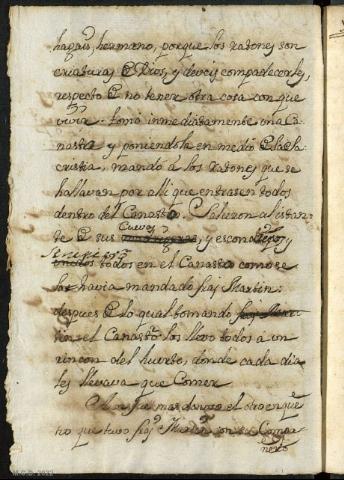 hagais, hermano, porque los ratones son
criaturas de Dios, y deveis compadecerles,
respecto de no tener otra cosa con que
vivir. tomo inmediatamente una Ca-
nasta y poniendola en medio de la Sa-
cristia, mandó á los ratones que se
hallavan por alli que entrasen todos
dentro del Canasto. Salieron al istan-
te de sus Cuevas, y escondrijos y
todos en el Canasto como se
los havia mandado fray Martin:
despues de lo qual tomando fray Mar-
tin el Canasto los llevo todos a un
rincon del huerto, donde cada dia
les llevava que Comer
mas el otro enquen-
tro que tuvo fray Martin con su Compa-
nero